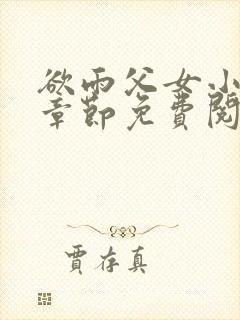 欲雨父女小
章節免費閱
賈存真